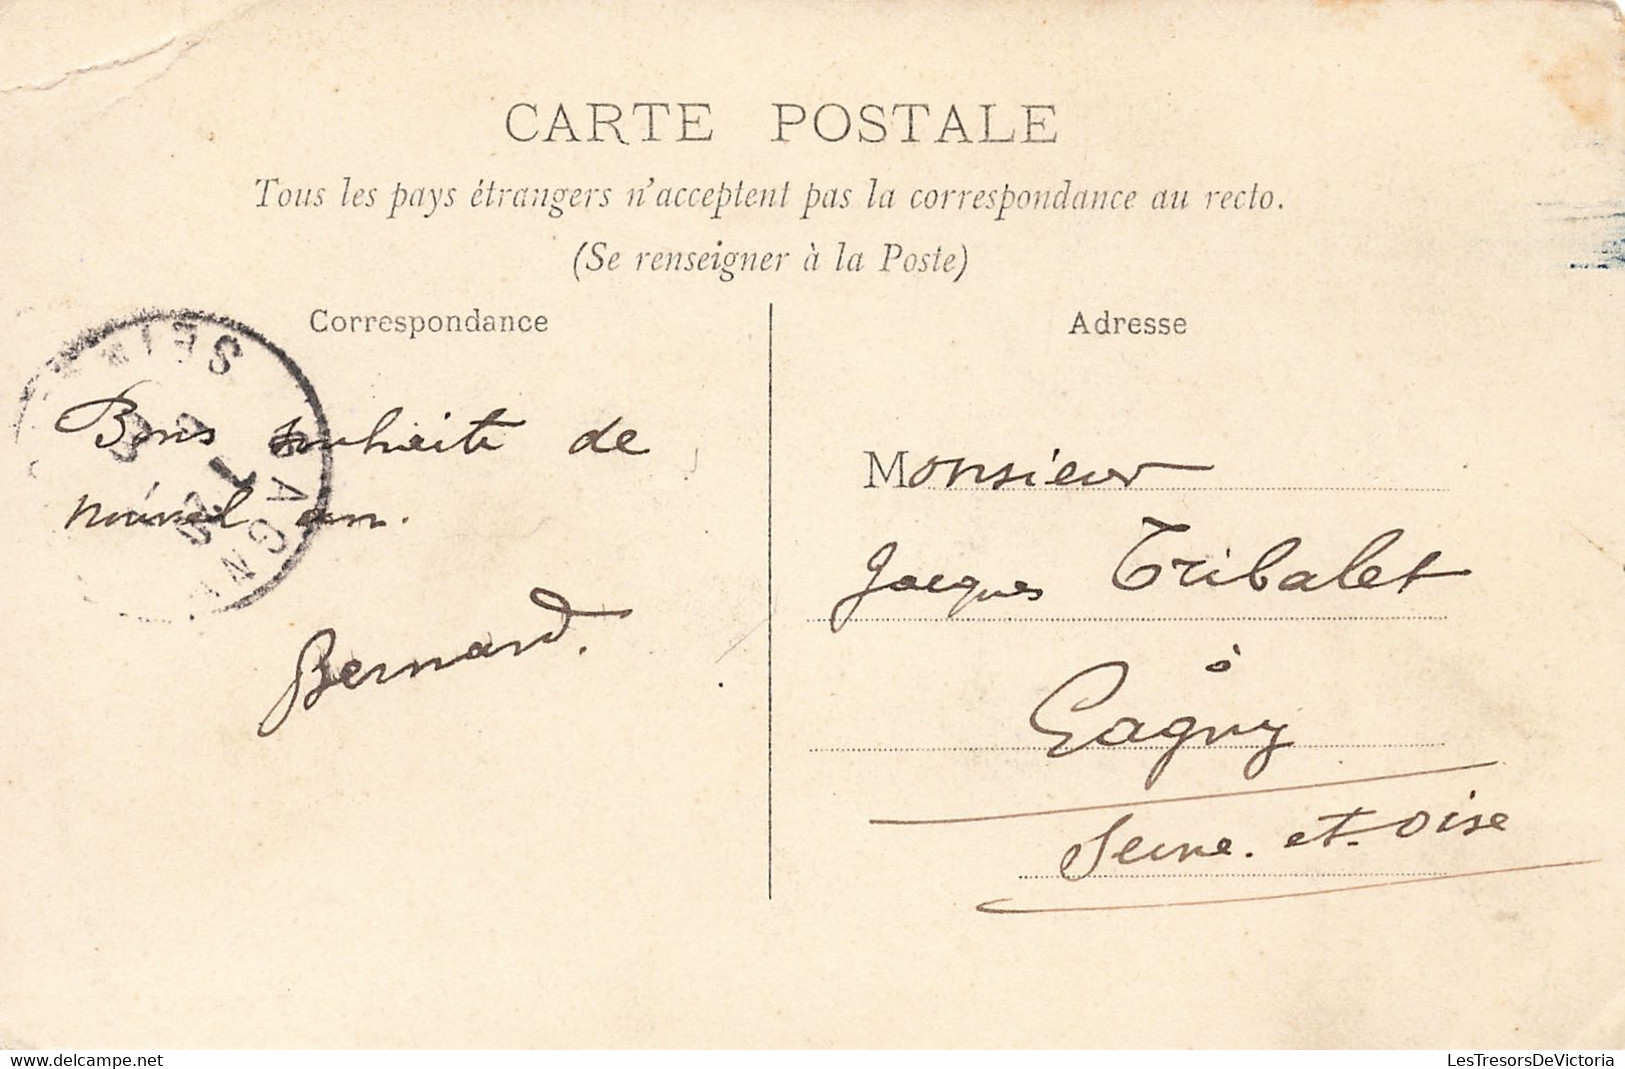 CARTE POSTALE
Tous les pays étrangers n'acceptent pas la correspondance au recto.
(Se renseigner à la Poste)
Correspondance
Bons souhaits de
nouvel an.
Bernard.
Adresse
Monsieur
Jacques Tribalet
à
Gagny
Seine-et-Oise
GAGNY
delcampe.net
LesTresorsDeVictoria